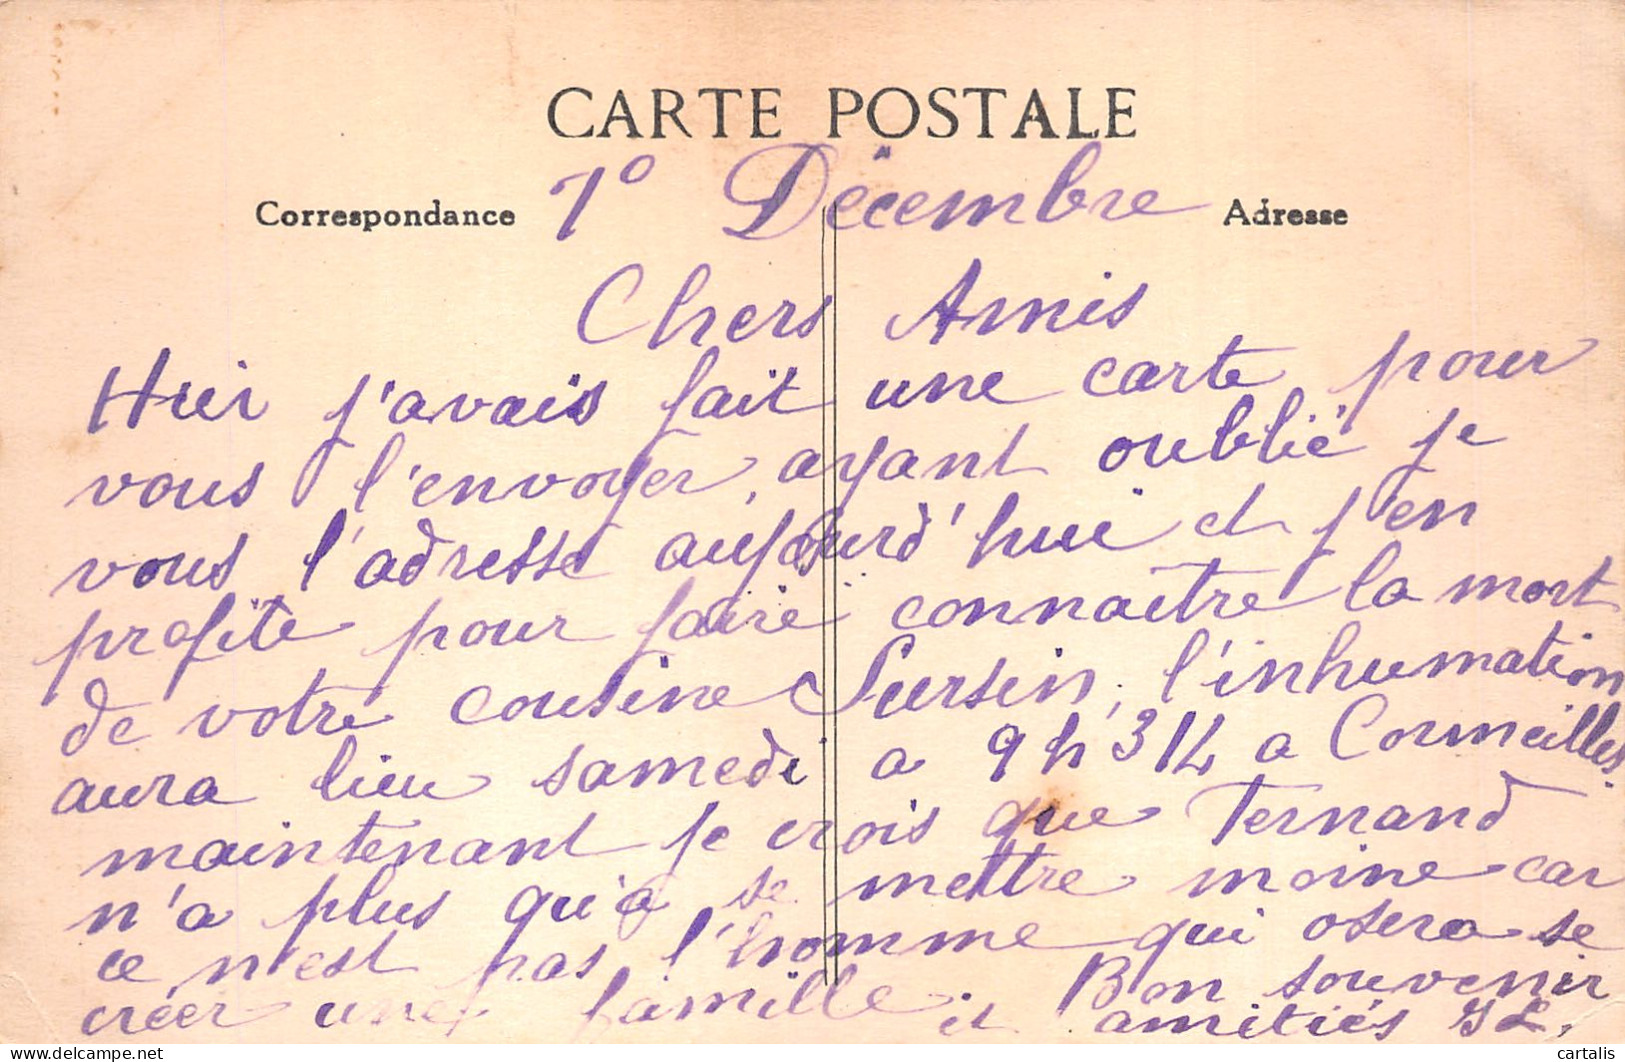 CARTE POSTALE
Correspondance 1° Décembre Adresse
Chers Amis
Hier j'avais fait une carte pour
vous l'envoyer, ayant oublié je
vous l'adresse aujourd'hui et j'en
profite pour faire connaitre la mort
de votre cousine Sursin, l'inhumation
aura lieu samedi a 9h 3/4 a Cormeilles.
maintenant je crois que Fernand
n'a plus qu'a se mettre moine car
ce n'est pas l'homme qui osera se
créer une famille Bon souvenir
et amitiés
cartalis
delcampe.net